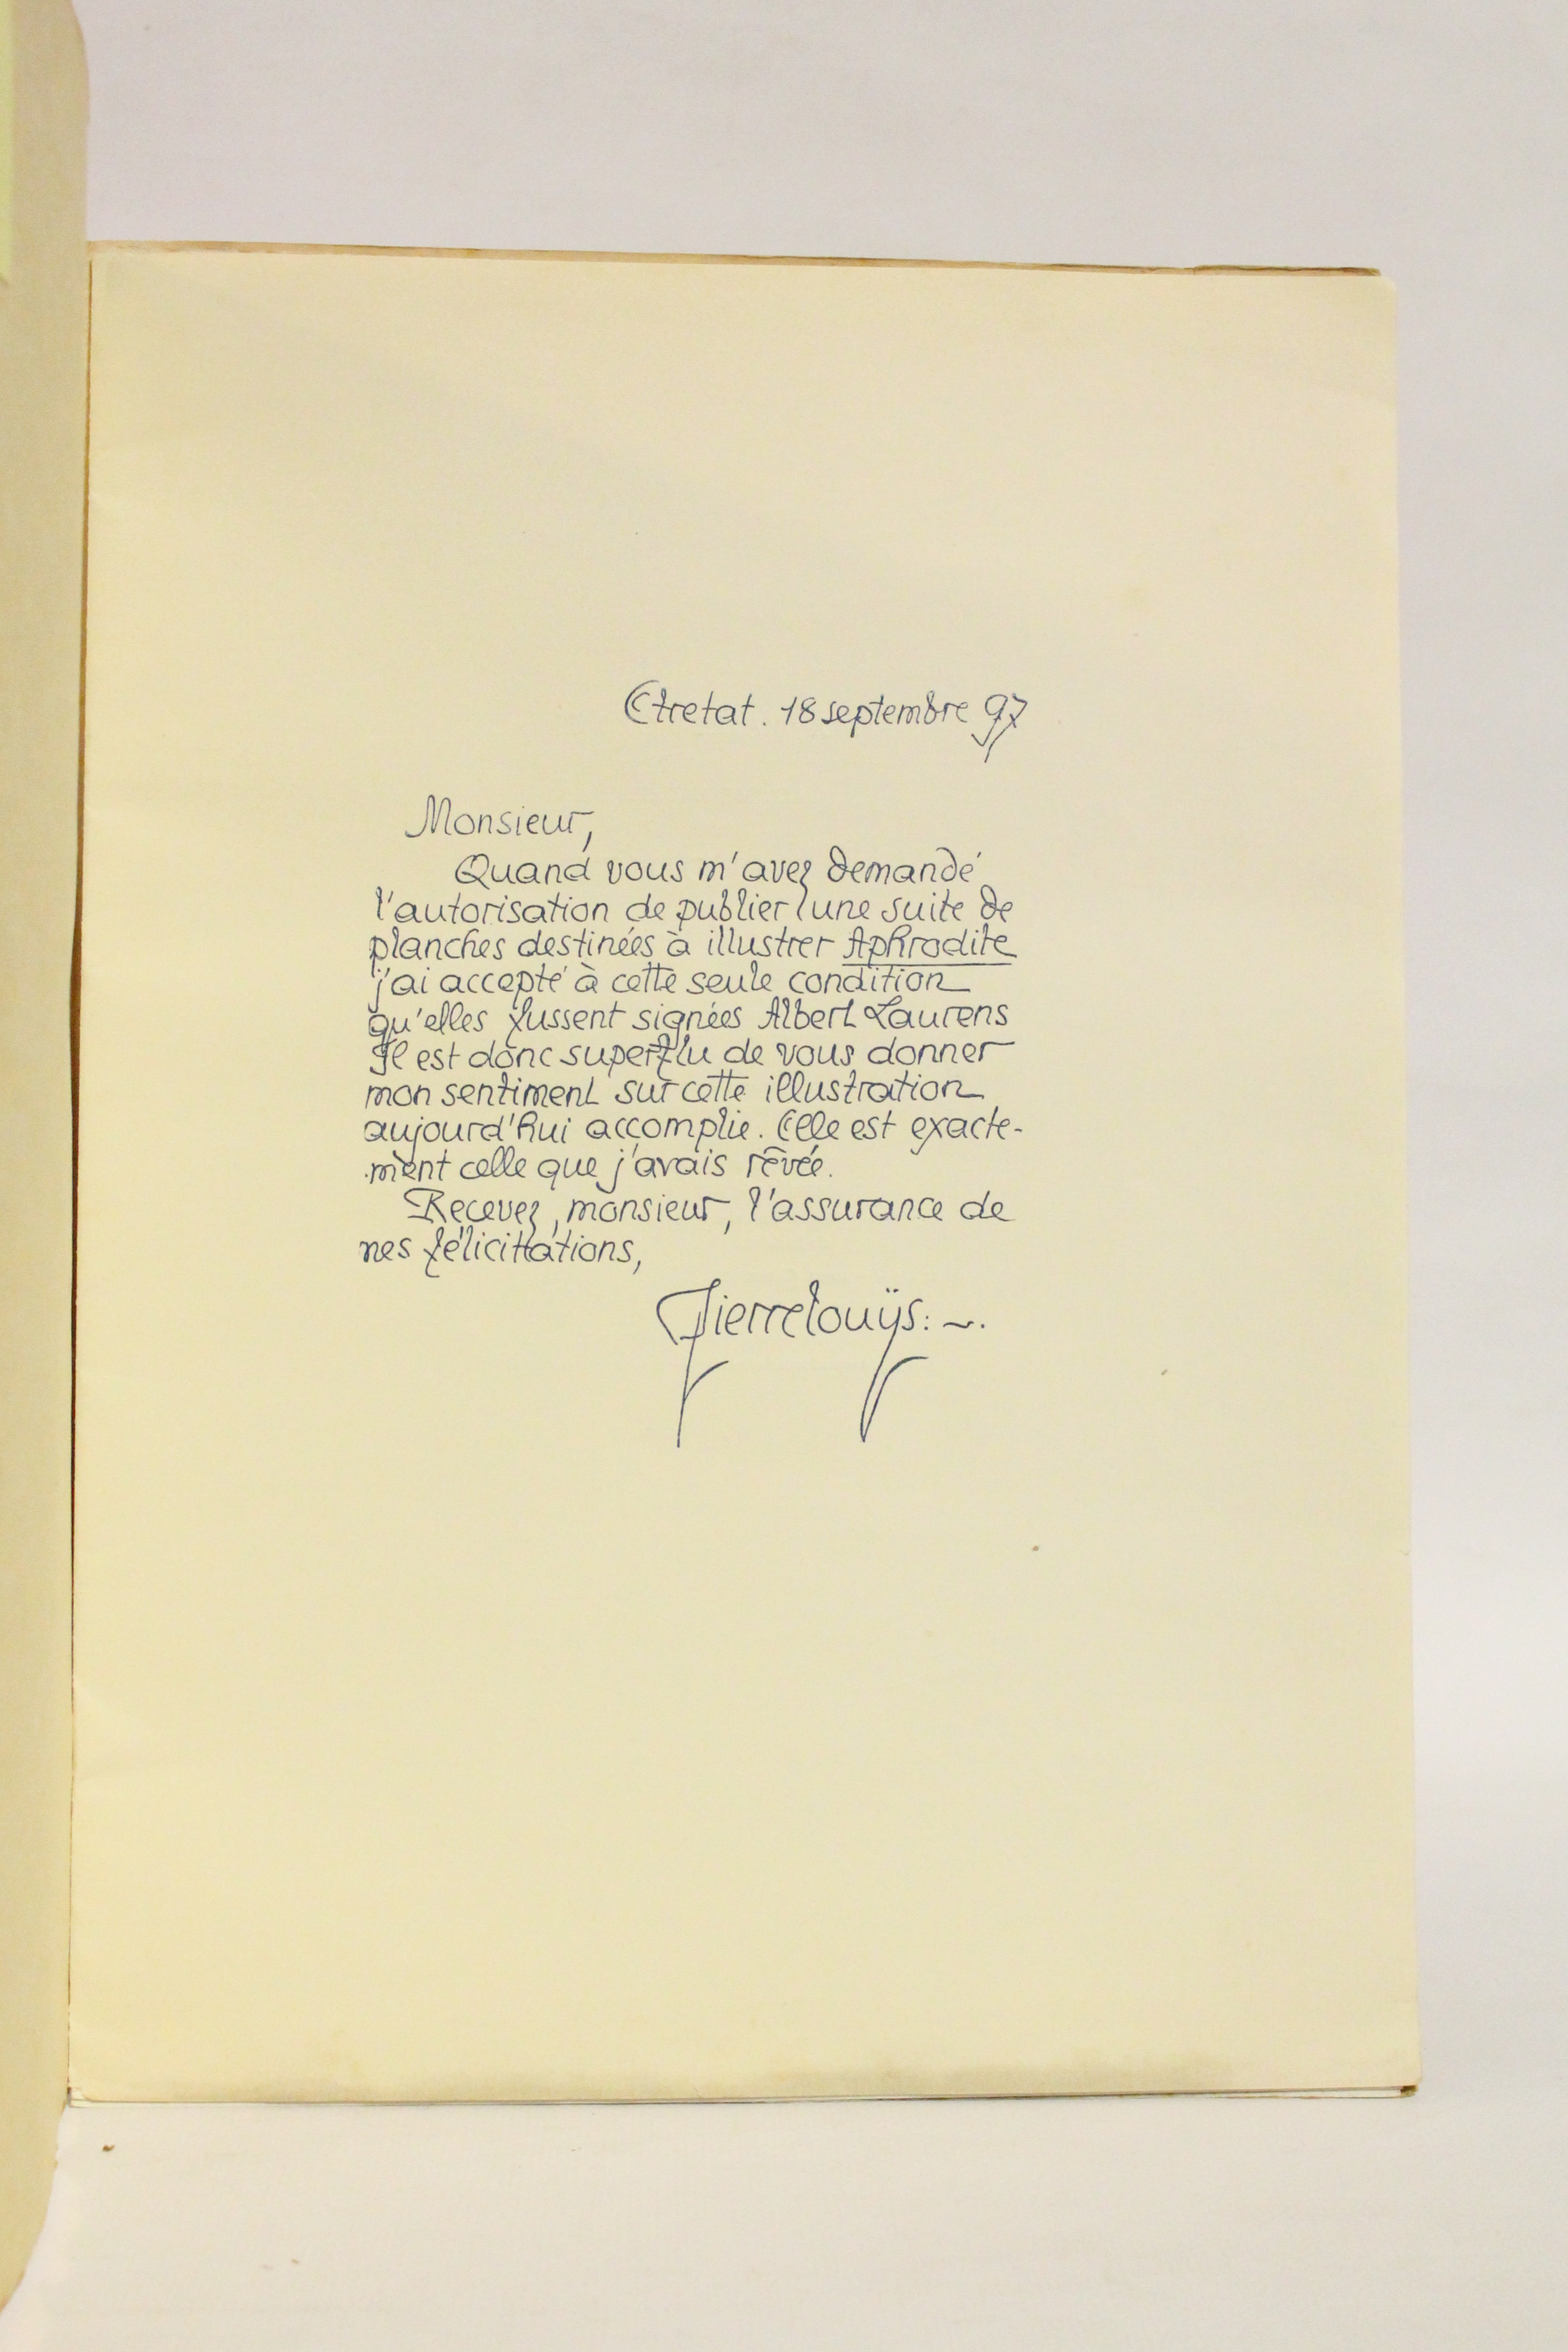 Etretat. 18 septembre 97
Monsieur,
Quand vous m'avez demandé
l'autorisation de publier une suite de
planches destinées à illustrer Aphrodite
j'ai accepté à cette seule condition
qu'elles fussent signées Albert Laurens
Il est donc superflu de vous donner
mon sentiment sur cette illustration
aujourd'hui accomplie. Elle est exacte-
ment celle que j'avais rêvée.
Recevez, monsieur, l'assurance de
mes félicitations,
Pierre Louÿs : ~.